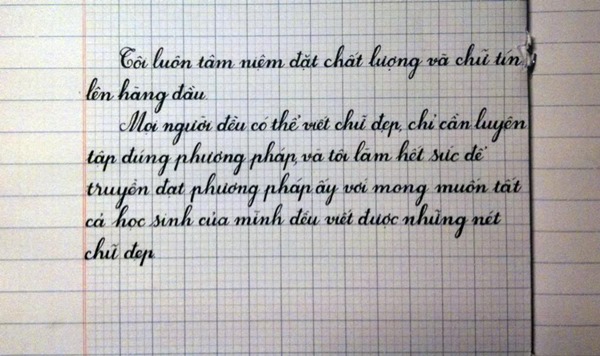 Tôi luôn tâm niệm đặt chất lượng và chữ tín
lên hàng đầu.
Mọi người đều có thể viết chữ đẹp, chỉ cần luyện
tập đúng phương pháp, và tôi làm hết sức để
truyền đạt phương pháp ấy với mong muốn tất
cả học sinh của mình đều viết được những nét
chữ đẹp.